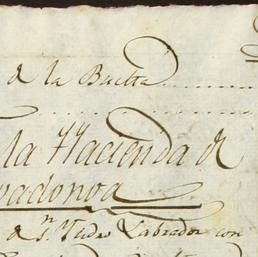 de la Buelta
la Hacienda de
vadonga
de Sn. Pedro Labrador con